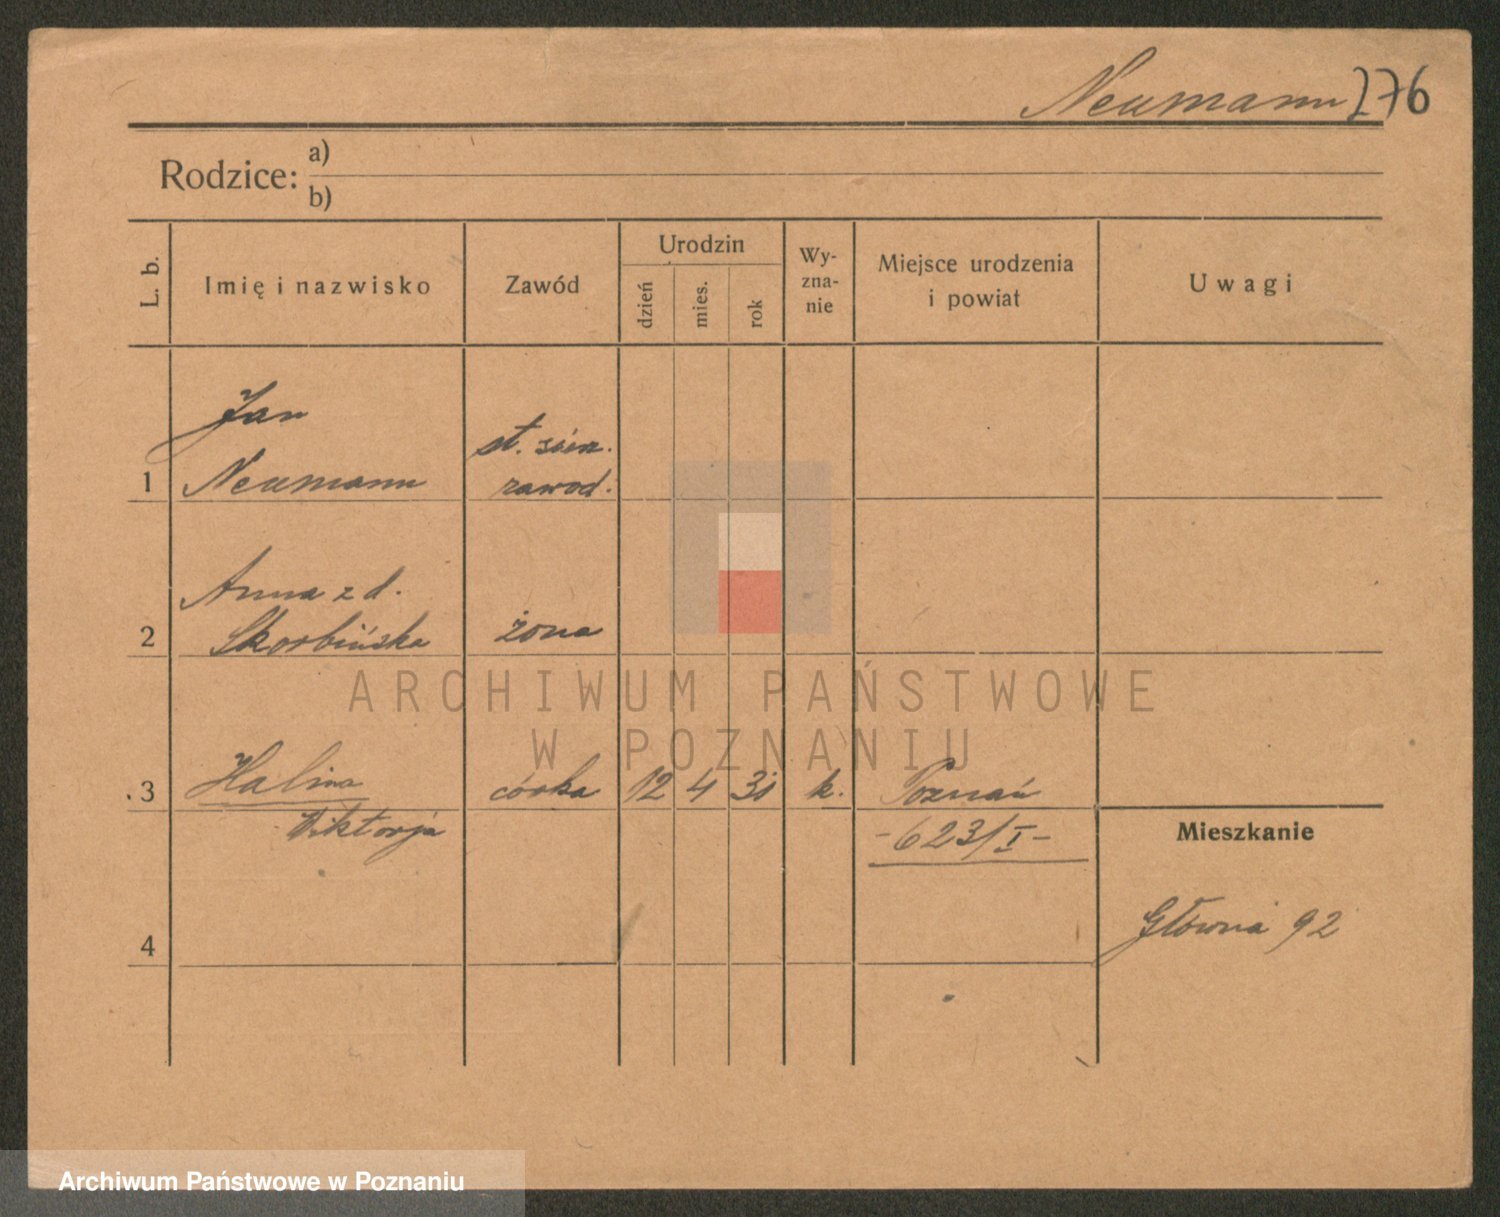 Neumann 276
Rodzice: a)
b)
L. b.
Imię i nazwisko
Zawód
Urodzin
dzień
mies.
rok
Wy-
zna-
nie
Miejsce urodzenia
i powiat
Uwagi
Jan
1 Neumann
st. sierż.
zawod.
Anna z d.
2 Skorbińska żona
3 Halina córka 12 4 31 k. Poznań
Wiktorja
-623/I-
Mieszkanie
Główna 92
4
ARCHIWUM PAŃSTWOWE
W POZNANIU
Archiwum Państwowe w Poznaniu